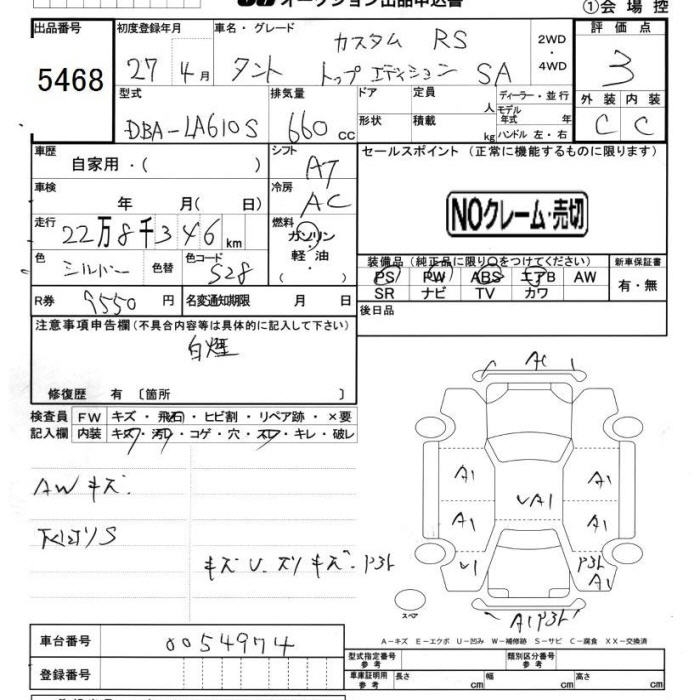 オークション出品申込書
①会場控
出品番号
初度登録年月
車名・グレード
評価点
5468
27年4月
タント
カスタム RS
トップエディション SA
2WD
・
4WD
3
型式
排気量
ドア
定員
人
ディーラー・並行
外装
内装
DBA-LA610S
660cc
形状
積載
kg
モデル年式 年
ハンドル 左・右
C
C
車歴
自家用・( )
シフト
AT
セールスポイント(正常に機能するものに限ります)
車検
年 月( 日)
冷房
AC
NOクレーム・売切
走行
22万8千346km
燃料
ガソリン
軽油
・( )
色
シルバー
色替
色コード
S28
装備品(純正品に限り○をつけてください)
新車保証書
PS PW ABS エアB AW
SR ナビ TV カワ
有・無
R券
9550円
名変通知期限 月 日
後日品
注意事項申告欄(不具合内容等は具体的に記入して下さい)
白煙
修復歴 有〔箇所 〕
検査員
記入欄
FW
キズ・飛石・ヒビ割・リペア跡・×要
内装
キズ・汚レ・コゲ・穴・スレ・キレ・破レ
AWキズ
下回りS
キズU.スリキズ P3L
A1
A1
A1
UA1
A1
A1
U1
P3L
A1
A1P3L
スペア
A-キズ E-エクボ U-凹み W-補修跡 S-サビ C-腐食 XX-交換済
車台番号
0054974
登録番号
型式指定番号
参考
類別区分番号
参考
車庫証明用
参考
長さ cm
幅 cm
高さ cm